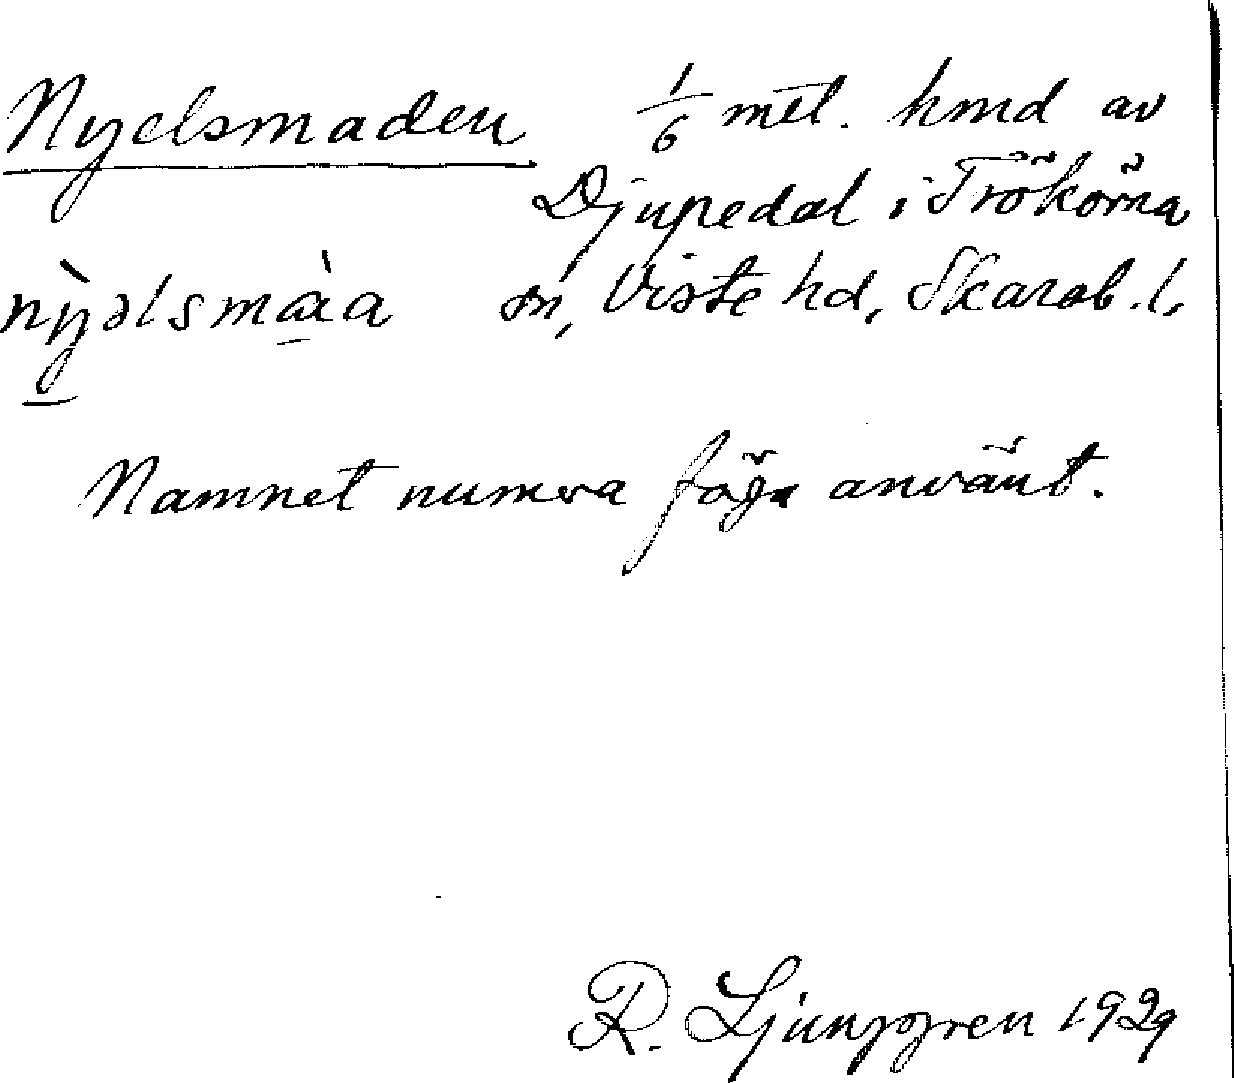 Nyelsmaden 1/6 mtl. hmd av
Djupedal i Trökörna
nỳəlsmàa sn, Viste hd, Skarab. l.
Namnet numera föga använt.
R. Ljunggren 1929